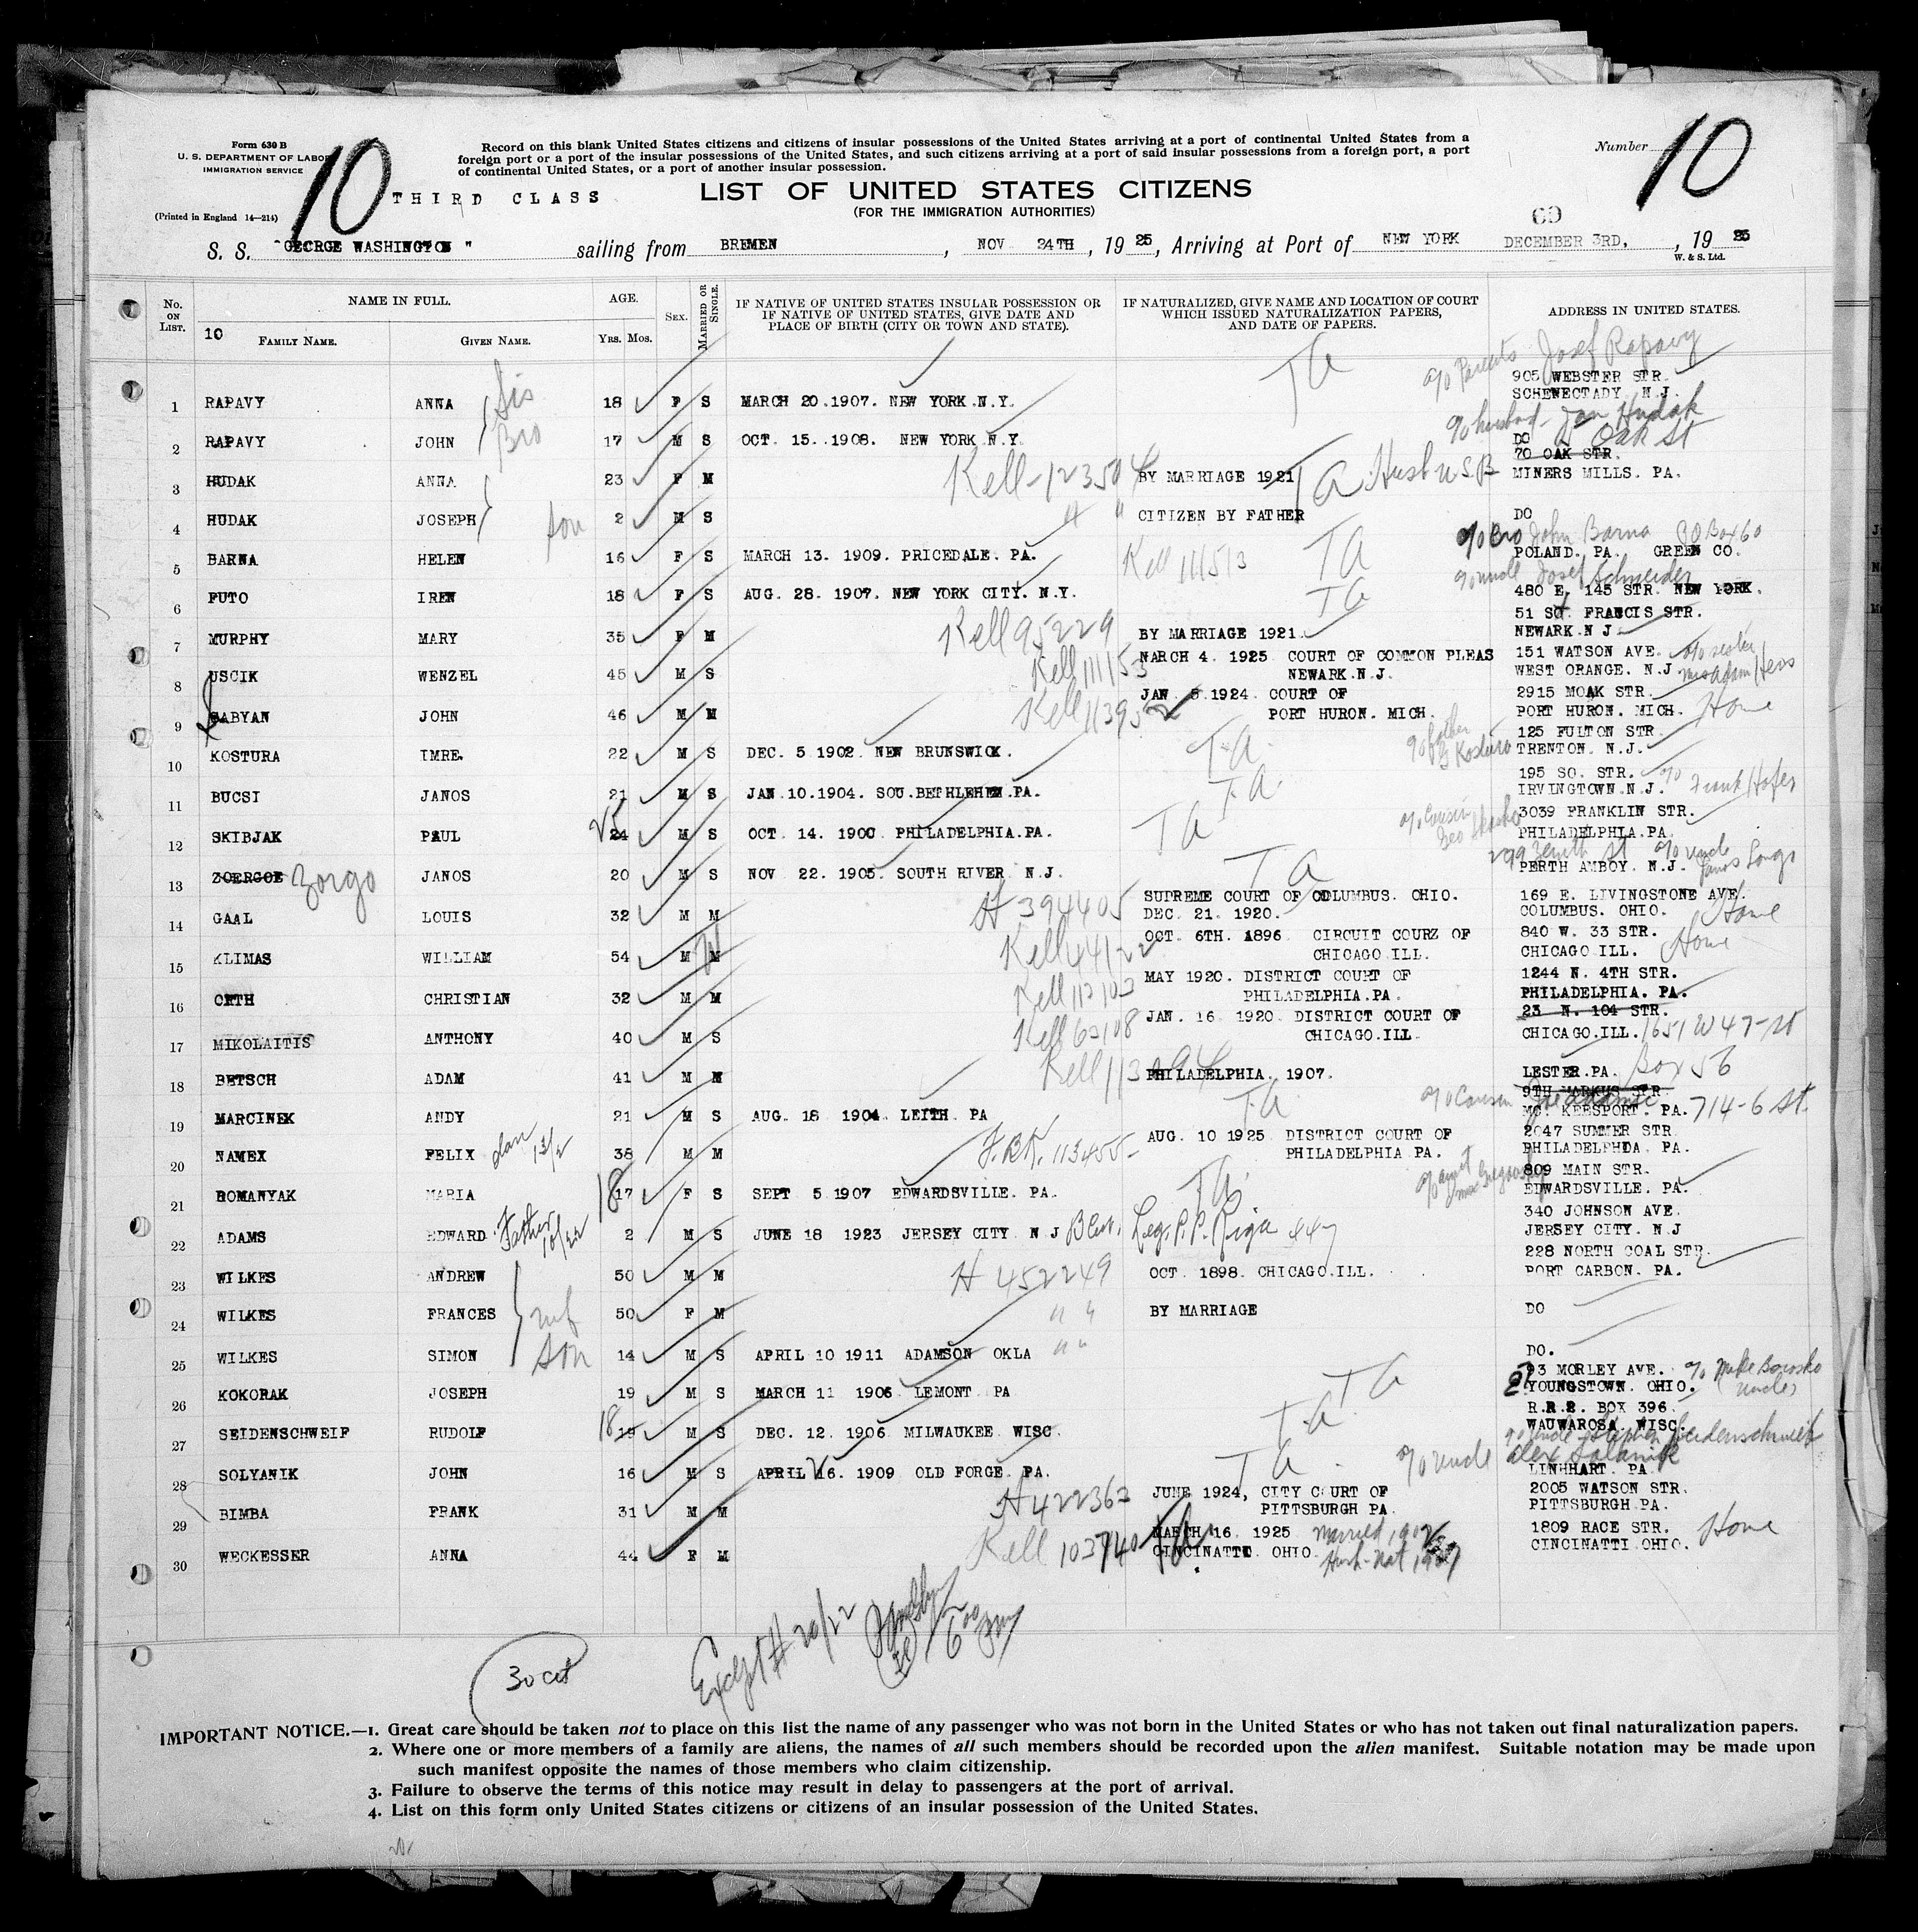 Form 630 B
U. S. DEPARTMENT OF LABOR
IMMIGRATION SERVICE
(Printed in England 14—214)
10
THIRD CLASS
Record on this blank United States citizens and citizens of insular possessions of the United States arriving at a port of continental United States from a
foreign port or a port of the insular possessions of the United States, and such citizens arriving at a port of said insular possessions from a foreign port, a port
of continental United States, or a port of another insular possession.
LIST OF UNITED STATES CITIZENS
(FOR THE IMMIGRATION AUTHORITIES)
Number 10
S. S. "GEORGE WASHINGTON" sailing from BREMEN, NOV 24TH, 1925, Arriving at Port of NEW YORK DECEMBER 3RD, 1925
W. & S. Ltd.
No. ON LIST. NAME IN FULL. AGE. SEX. MARRIED OR SINGLE. IF NATIVE OF UNITED STATES INSULAR POSSESSION OR IF NATIVE OF UNITED STATES, GIVE DATE AND PLACE OF BIRTH (CITY OR TOWN AND STATE). IF NATURALIZED, GIVE NAME AND LOCATION OF COURT WHICH ISSUED NATURALIZATION PAPERS, AND DATE OF PAPERS. ADDRESS IN UNITED STATES.
10 FAMILY NAME. GIVEN NAME. Yrs. Mos.
TA c/o Parents Josef Rapavy
905 WEBSTER STR.
1 RAPAVY ANNA Sis 18 F S MARCH 20.1907. NEW YORK.N.Y. SCHENECTADY. N.J.
c/o husband - Jan Hudak
2 RAPAVY JOHN Bro 17 M S OCT. 15. 1908. NEW YORK N.Y. DO Oak St
70 OAK STR.
3 HUDAK ANNA 23 F M Kell-123504 BY MARRIAGE 1921 TA Husb USB MINERS MILLS. PA.
4 HUDAK JOSEPH son 2 M S " " CITIZEN BY FATHER DO
c/o Bro John Barna PO Box 60
5 BARNA HELEN 16 F S MARCH 13. 1909. PRICEDALE. PA. Kell 111513 TA POLAND. PA. GREEN CO.
c/o uncle Josef Schneider
6 FUTO IREN 18 F S AUG. 28. 1907. NEW YORK CITY. N.Y. TA 480 E. 145 STR. NEW YORK.
51 SO. FRANCIS STR.
7 MURPHY MARY 35 F M Kell 95229 BY MARRIAGE 1921. NEWARK.N J.
MARCH 4. 1925 COURT OF COMMON PLEAS 151 WATSON AVE. c/o sister
8 USCIK WENZEL 45 M S Kell 111153 NEWARK.N.J. WEST ORANGE. N.J.
JAN. 5.1924. COURT OF 2915 MOAK STR.
9 BABYAN JOHN 46 M M PORT HURON. MICH. PORT HURON. MICH. Home
125 FULTON STR
10 KOSTURA IMRE. 22 M S DEC. 5 1902. NEW BRUNSWICK. T.A. c/o father TRENTON. N.J.
195 SO. STR. c/o
11 BUCSI JANOS 21 M S JAN.10.1904. SOU.BETHLEHEM.PA. T.A. IRVINGTOWN.N.J. Frank Hofer
3039 FRANKLIN STR.
12 SKIBJAK PAUL 25 24 M S OCT. 14. 1900 PHILADELPHIA.PA. TA c/o Cousin PHILADELPHIA.PA.
c/o uncle
13 ZOERGOE Zorgo JANOS 20 M S NOV 22. 1905. SOUTH RIVER N.J. TA PERTH AMBOY. N.J.
SUPREME COURT OF COLUMBUS. OHIO. 169 E. LIVINGSTONE AVE.
14 GAAL LOUIS 32 M M H 394405 DEC. 21. 1920. COLUMBUS. OHIO. Home
OCT. 6TH. 1896 CIRCUIT COURZ OF 840 W. 33 STR.
15 KLIMAS WILLIAM 54 M M Kell 44122 CHICAGO.ILL. CHICAGO ILL. Home
MAY 1920. DISTRICT COURT OF 1244 N. 4TH STR.
16 ORTH CHRISTIAN 32 M M Kell 112103 PHILADELPHIA.PA. PHILADELPHIA. PA.
JAN. 16 1920. DISTRICT COURT OF 23 N. 104 STR.
17 MIKOLAITIS ANTHONY 40 M S Kell 62108 CHICAGO.ILL. CHICAGO.ILL. 1651 W 47-St
18 BETSCH ADAM 41 M M PHILADELPHIA. 1907. LESTER.PA. Box 56
9TH MARKUS STR
19 MARCINEK ANDY 21 M S AUG. 18 1904. LEITH PA TA c/o Cousin MC. KEESPORT. PA. 714-6 St.
AUG. 10 1925 DISTRICT COURT OF 2047 SUMMER STR
20 NAMEX FELIX 38 M M F.B.K. 113455- PHILADELPHIA PA. PHILADELPHIA. PA.
809 MAIN STR.
21 ROMANYAK MARIA 18 17 F S SEPT 5.1907 EDWARDSVILLE. PA. TA c/o aunt EDWARDSVILLE. PA.
340 JOHNSON AVE.
22 ADAMS EDWARD Father 10/22 2 M S JUNE 18 1923 JERSEY CITY N J B Cert. Leg. P.P. Riga 447 JERSEY CITY. N.J
228 NORTH COAL STR.
23 WILKES ANDREW 50 M M H 452249 OCT. 1898. CHICAGO.ILL. PORT CARBON. PA.
24 WILKES FRANCES wf 50 F M " " BY MARRIAGE DO
25 WILKES SIMON son 14 M S APRIL 10 1911 ADAMSON OKLA " " DO.
93 MORLEY AVE. c/o Mike Borosko
26 KOKORAK JOSEPH 19 M S MARCH 11 1906 LEMONT PA TA YOUNGSTOWN. OHIO. Uncle
R.R.2. BOX 396.
27 SEIDENSCHWEIF RUDOLF 18 19 M S DEC. 12. 1906 MILWAUKEE WISC. T.A WAUWAROSA WISC.
c/o uncle Stephen Seidenschweif
28 SOLYANIK JOHN 16 M S APRIL 16. 1909 OLD FORGE. PA. TA c/o uncle Alex Solanik LINHHART. PA.
JUNE 1924, CITY COURT OF 2005 WATSON STR.
29 BIMBA FRANK 31 M M H 422362 PITTSBURGH PA. PITTSBURGH.PA.
MARCH 16. 1925 Married 1902 1809 RACE STR.
30 WECKESSER ANNA 44 F M Kell 103740 CINCINATTI. OHIO. Husb. Nat. CINCINATTI OHIO. Home
30 cit
Except # 20/22
6 00 pm
IMPORTANT NOTICE.—1. Great care should be taken not to place on this list the name of any passenger who was not born in the United States or who has not taken out final naturalization papers.
2. Where one or more members of a family are aliens, the names of all such members should be recorded upon the alien manifest. Suitable notation may be made upon
such manifest opposite the names of those members who claim citizenship.
3. Failure to observe the terms of this notice may result in delay to passengers at the port of arrival.
4. List on this form only United States citizens or citizens of an insular possession of the United States.